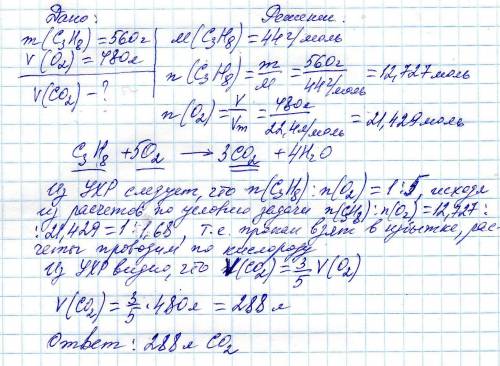 Дано: Решение:
m(C₃H₈)=560г M(C₃H₈)=44г/моль
V(O₂)=480л n(C₃H₈)=m/M=560г/44г/моль=12,727моль
V(CO₂)-? n(O₂)=V/Vm=480л/22,4л/моль=21,429моль
C₃H₈ +5O₂ → 3CO₂ +4H₂O
Из УХР следует, что n(C₃H₈):n(O₂)=1:5, исходя
из расчетов по условию задачи n(C₃H₈):n(O₂)=12,727:
:21,429=1:1,68, т.е. пропан взят в избытке, рас-
четы проводим по кислороду
Из УХР видно, что V(CO₂)=3/5 V(O₂)
V(CO₂)=3/5·480л=288л
Ответ: 288л CO₂